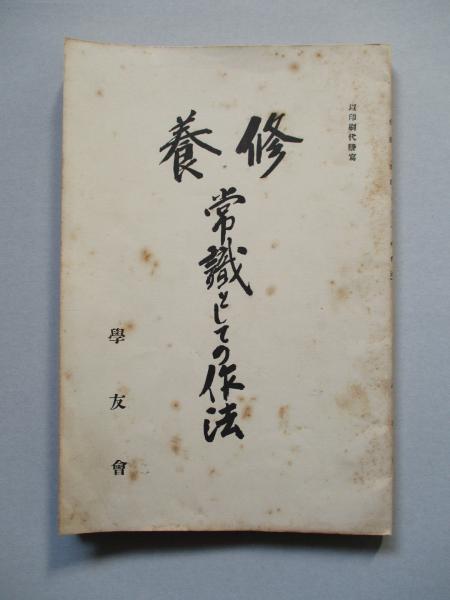 以印刷代謄寫
修養
常識としての作法
學友會